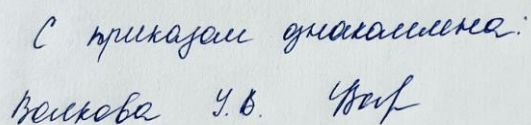 С приказом ознакомлена:
Волкова У.В.